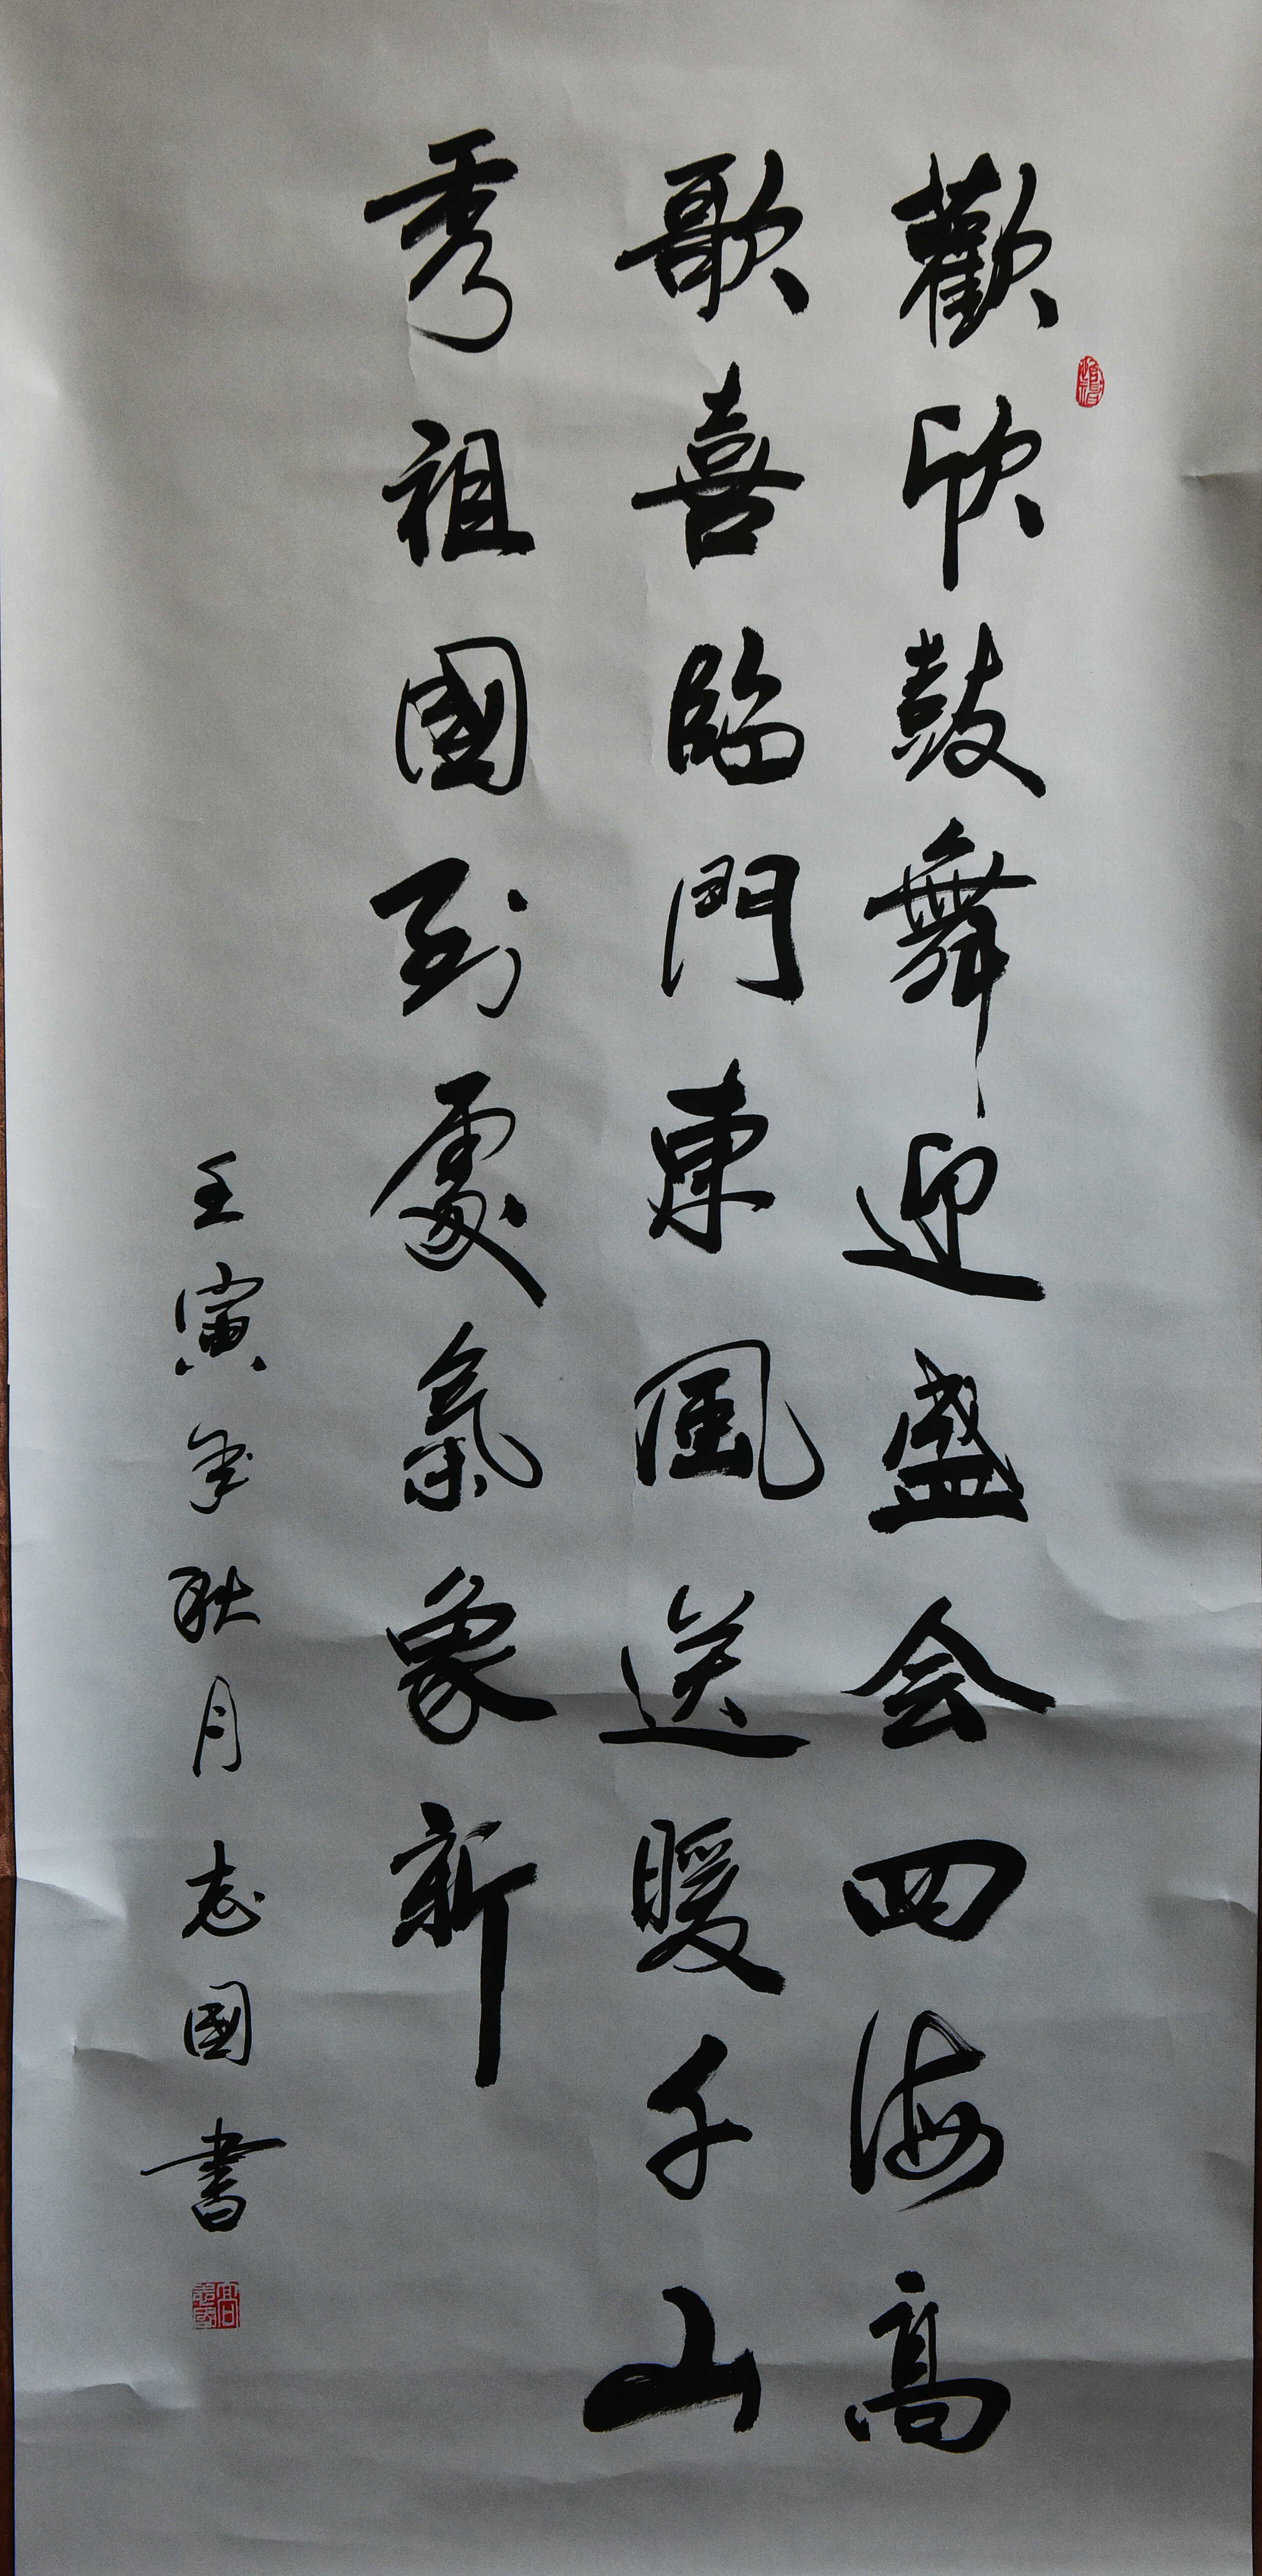 歡欣鼓舞迎盛会四海高
歌喜臨門東風送暖千山
秀祖國到處氣象新
壬寅年秋月志國書